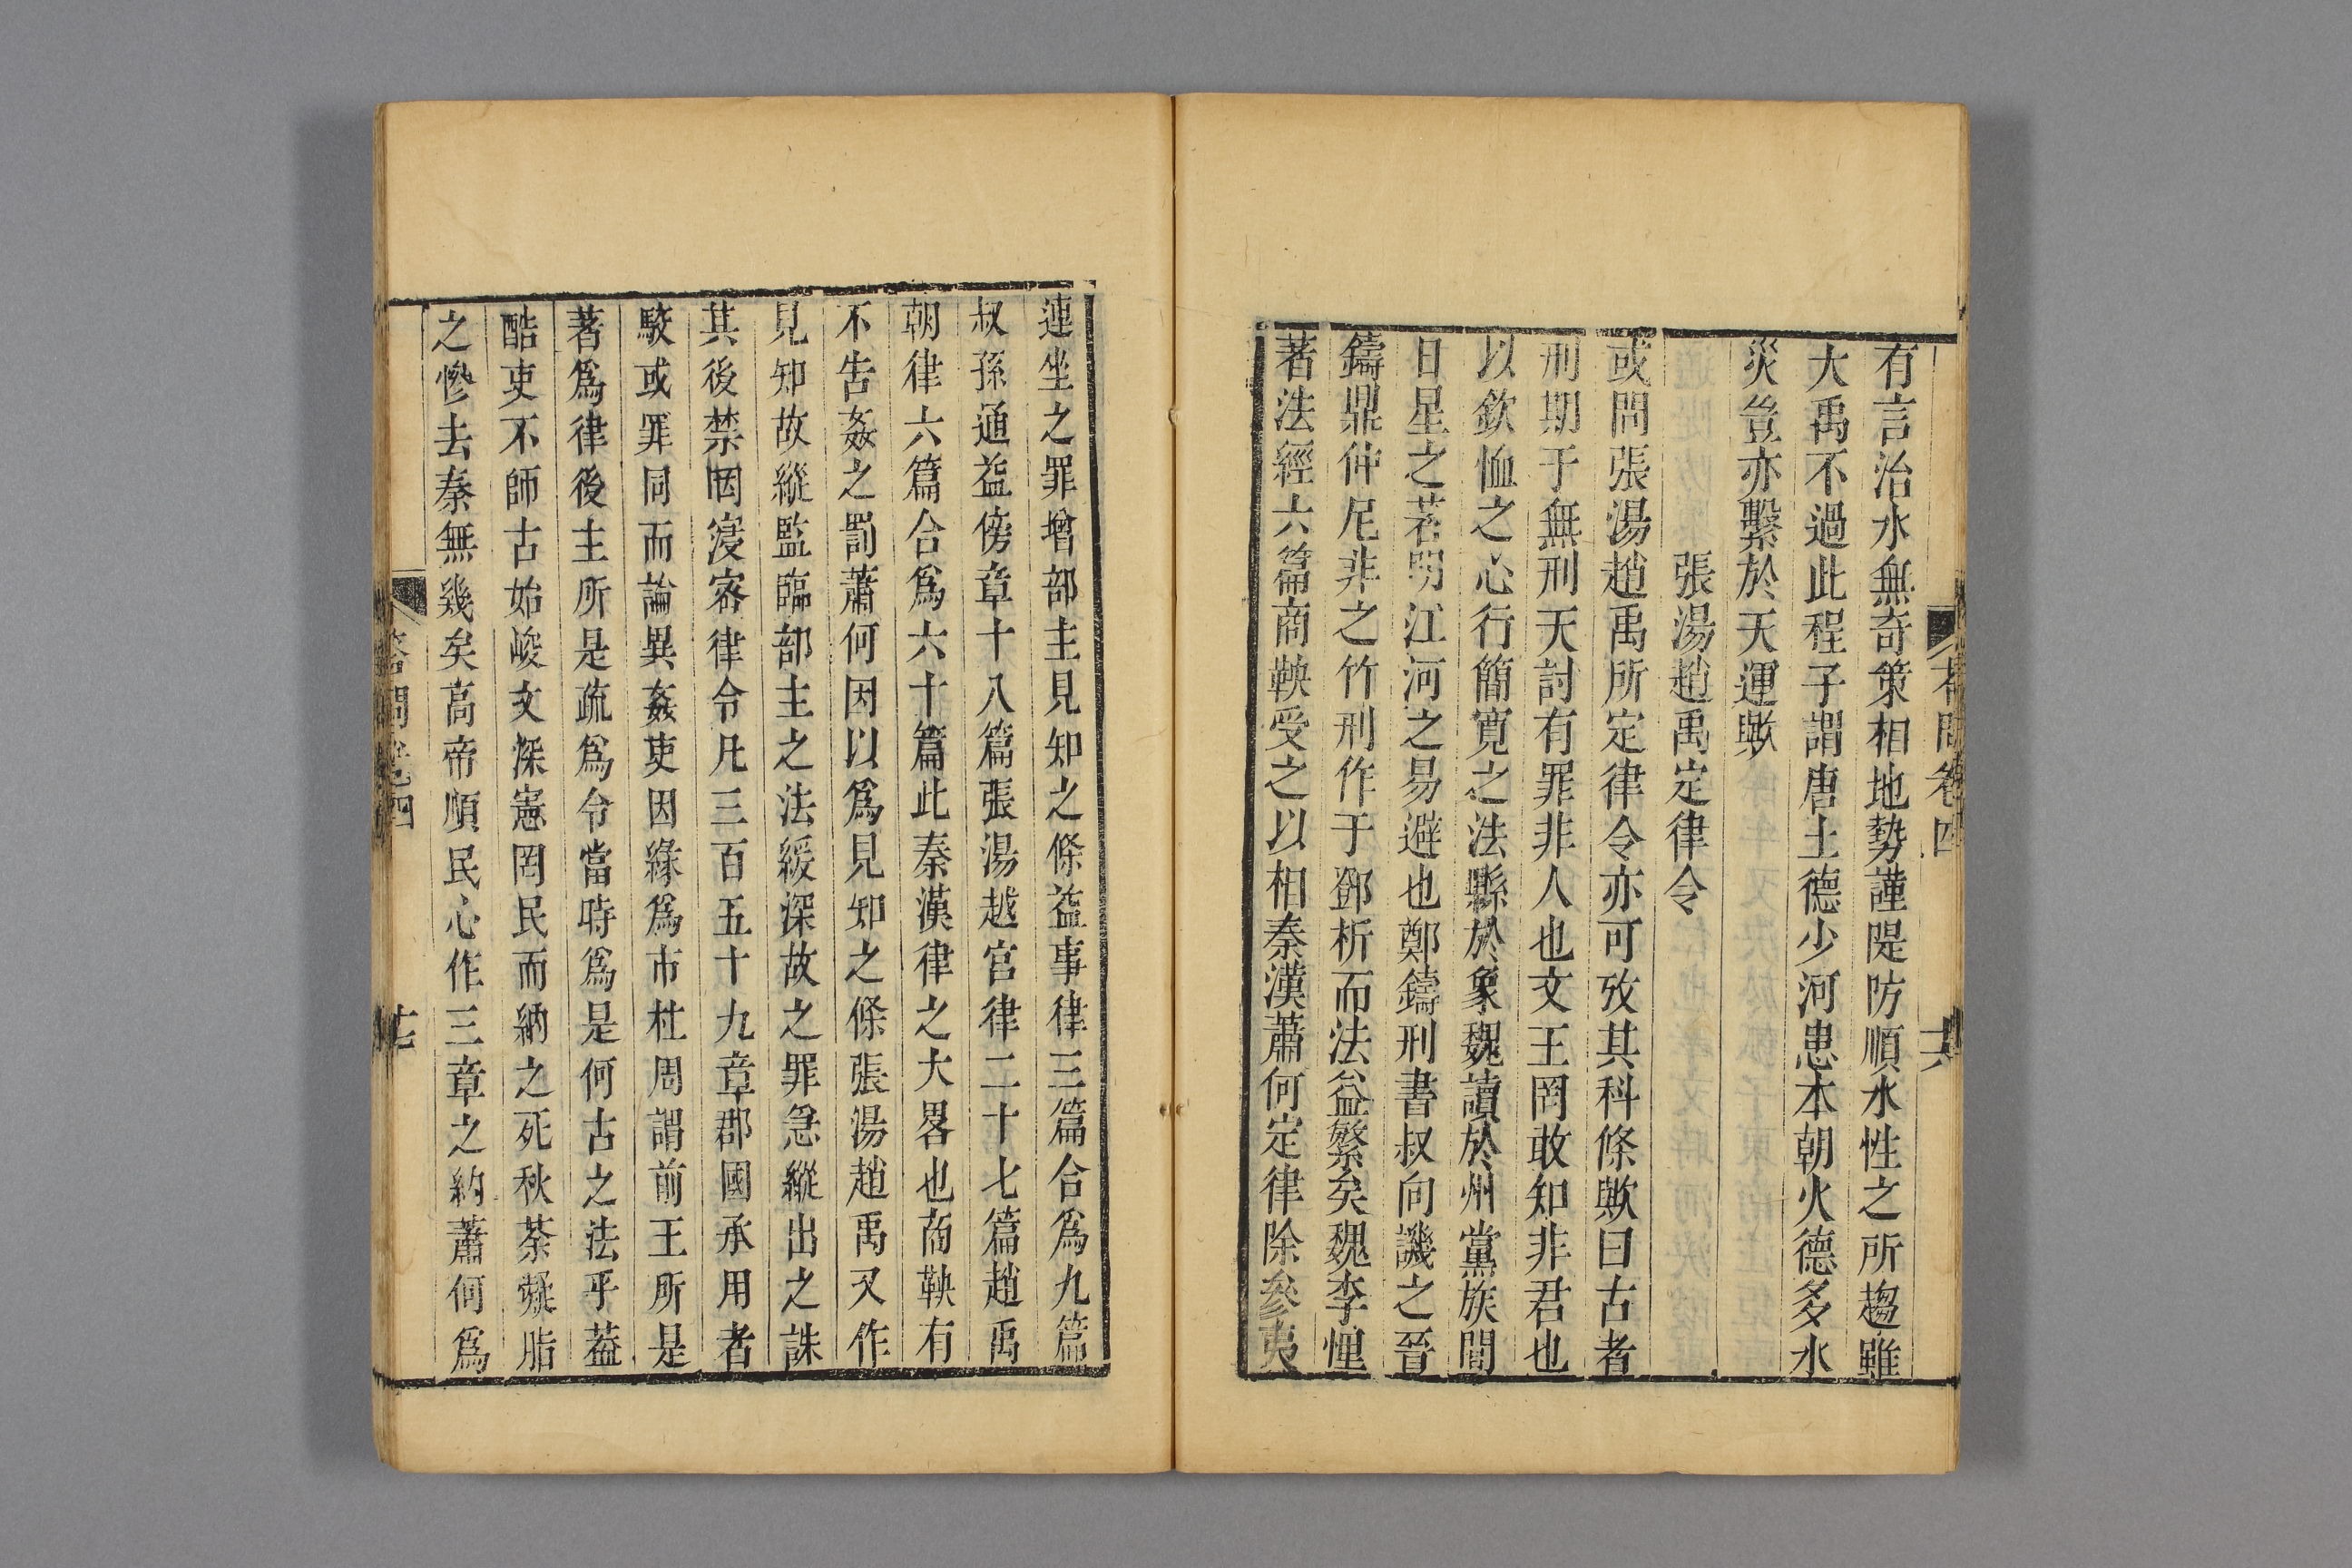 有言治水無奇策相地勢謹隄防順水性之所趨雖
大禹不過此程子謂唐土德少河患本朝火德多水
災豈亦繫於天運歟
張湯趙禹定律令
或問張湯趙禹所定律令亦可攷其科條歟曰古者
刑期于無刑天討有罪非人也文王罔敢知非君也
以欽恤之心行簡寬之法縣於象魏讀於州黨族閭
日星之著明江河之易避也鄭鑄刑書叔向譏之晉
鑄鼎仲尼非之竹刑作于鄧析而法益繁矣魏李悝
著法經六篇商鞅受之以相秦漢蕭何定律除參夷
連坐之罪增部主見知之條益事律三篇合爲九篇
叔孫通益傍章十八篇張湯越宮律二十七篇趙禹
朝律六篇合爲六十篇此秦漢律之大畧也商鞅有
不告姦之罰蕭何因以爲見知之條張湯趙禹又作
見知故縱監臨部主之法緩深故之罪急縱出之誅
其後禁罔寖密律令凡三百五十九章郡國承用者
駮或罪同而論異姦吏因緣爲市杜周謂前王所是
著爲律後主所是疏爲令當時爲是何古之法乎葢
酷吏不師古始峻文深憲罔民而納之死秋荼凝脂
之慘去秦無幾矣高帝順民心作三章之約蕭何爲
答問卷四
十七